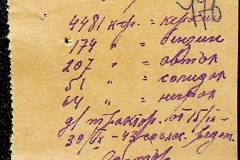 176
4481 кгр. = керосин
174 " = бензин
207 " = автол
51 " = солидол
64 " = нигрол
дл трактор. от 15/IX-
30/IX - 43 соглас. ведом.